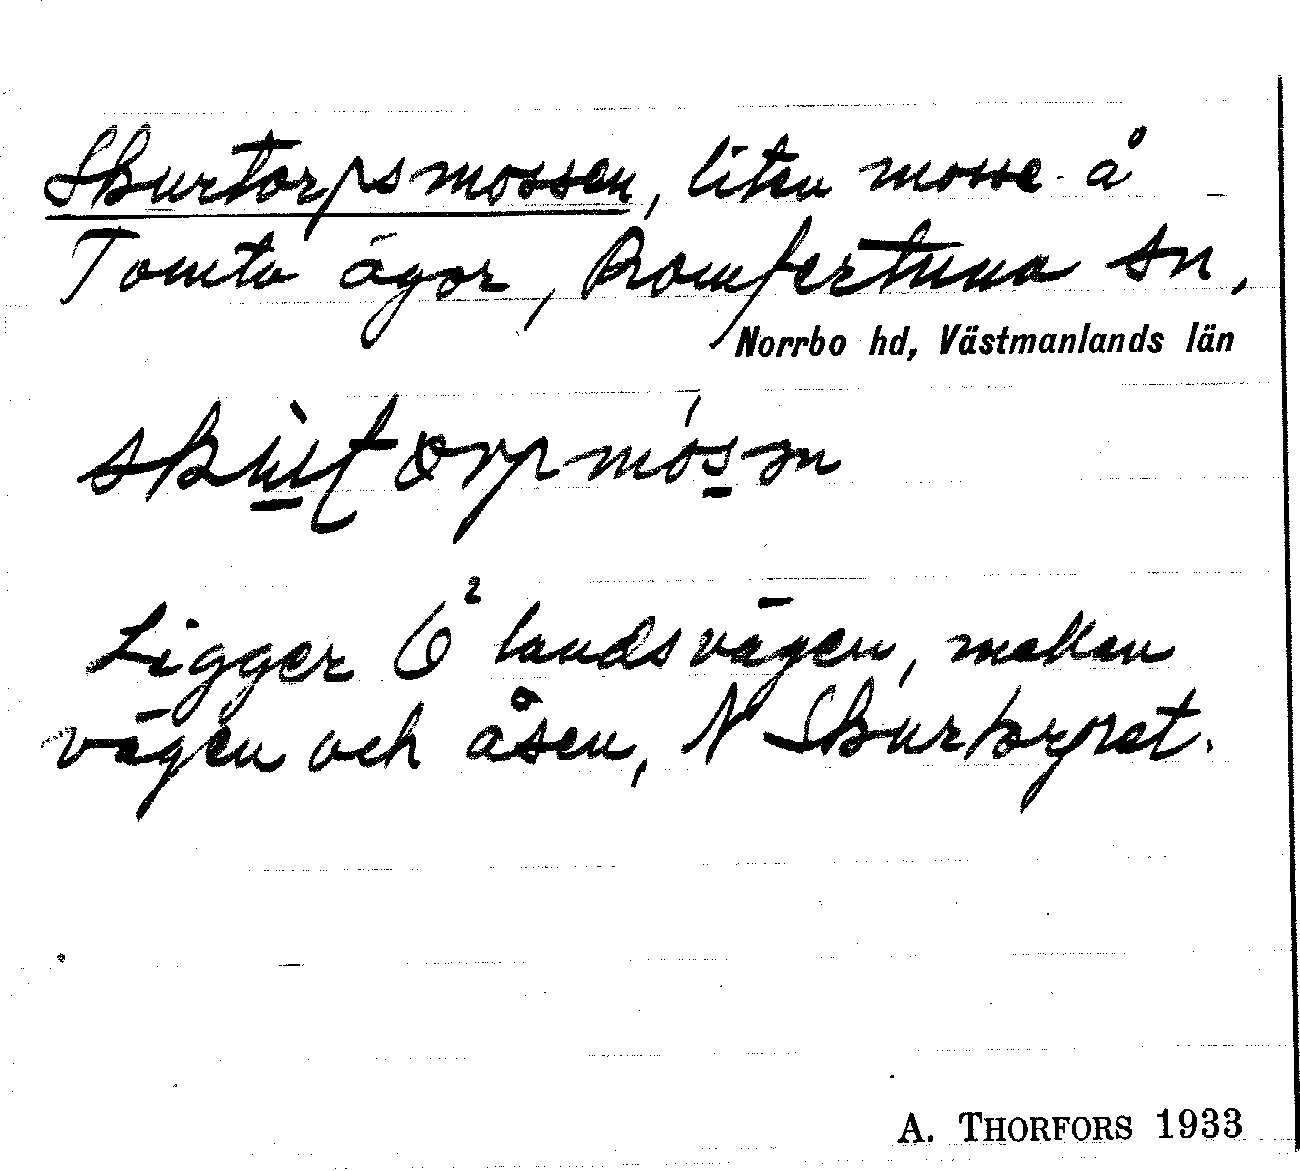 Skurtorpsmossen, liten mosse å
Tomta ägor, Romfertuna sn,
Norrbo hd, Västmanlands län
Ligger Ö landsvägen, mellan
vägen och åsen, N Skurtorpet.
A. THORFORS 1933